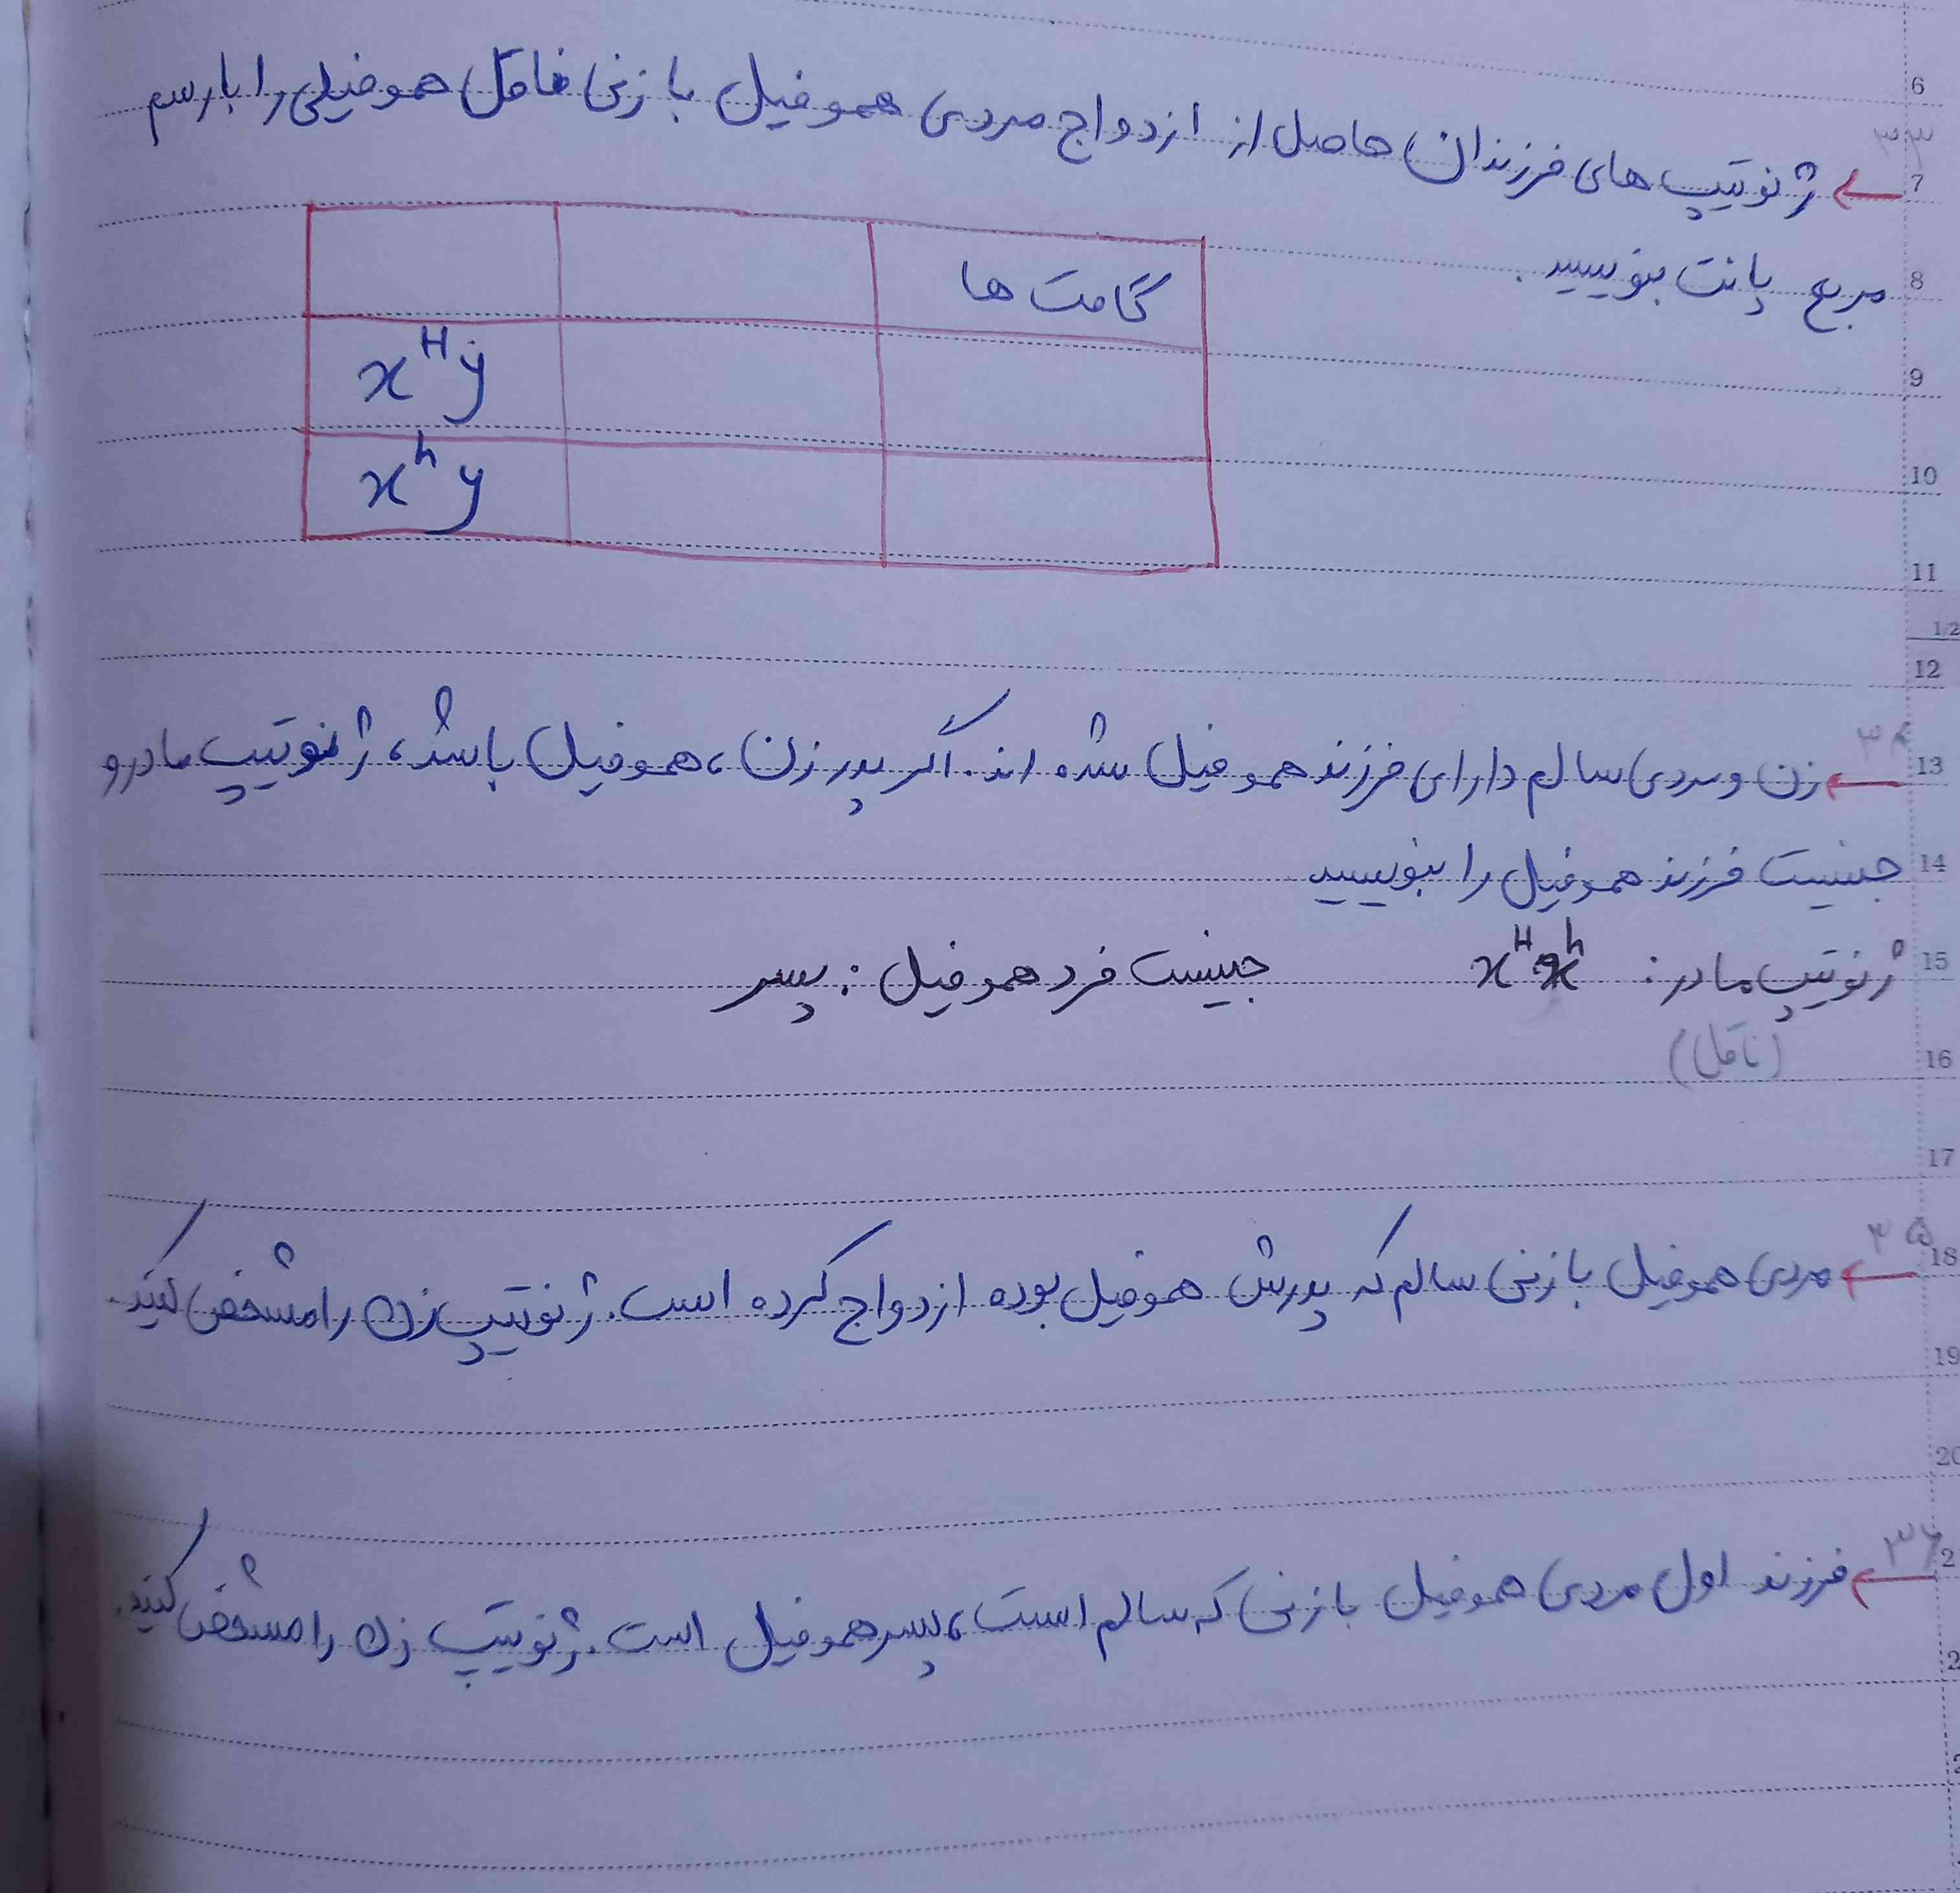 6
۳۳
7 ← ژنوتیپ های فرزندان حاصل از ازدواج مردی هموفیل با زنی ناقل هموفیلی را با رسم
8 مربع پانت بنویسید.
گامت ها
9
xᴴy
10
xʰy
11
1/2
12
۳۴
13 ← زن و مردی سالم دارای فرزند هموفیل شده اند. اگر پدر زن، هموفیل باشد، ژنوتیپ مادر و
14 جنسیت فرزند هموفیل را بنویسید
15 ژنوتیپ مادر: xᴴxʰ جنیست فرد هموفیل: پسر
16 (ناقل)
17
۳۵
18 ← مردی هموفیل با زنی سالم که پدرش هموفیل بوده ازدواج کرده است. ژنوتیپ زن را مشخص کنید.
19
20
۳۶
2 ← فرزند اول مردی هموفیل با زنی که سالم است، پسر هموفیل است. ژنوتیپ زن را مشخص کنید.
2